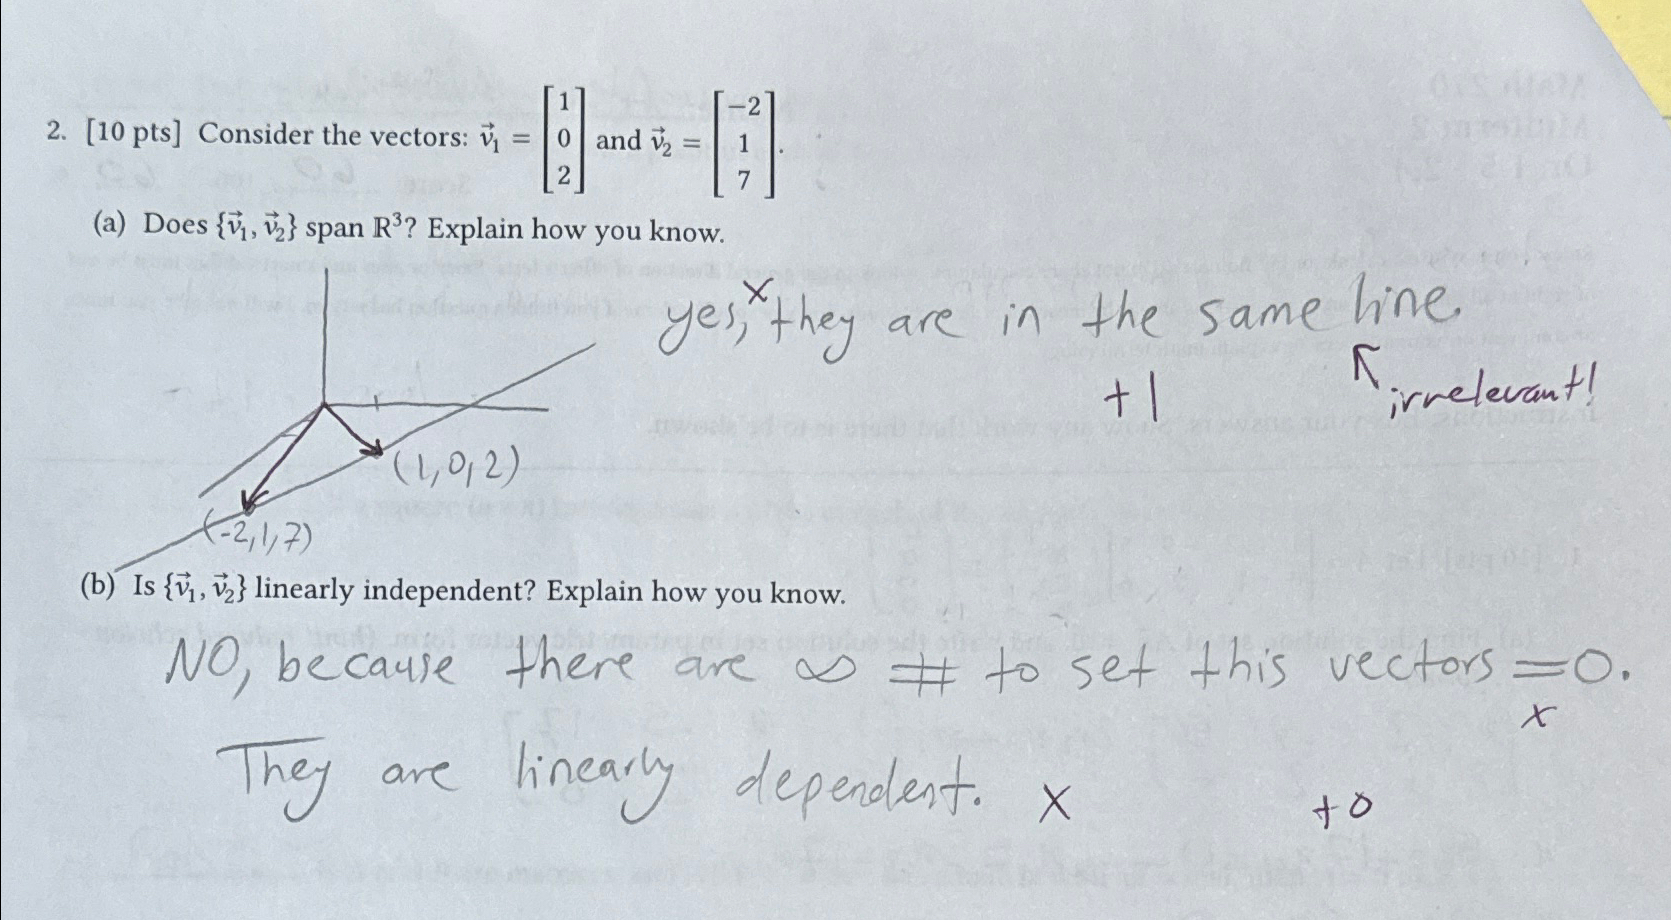 2. [10 pts] Consider the vectors: v⃗₁ = [1 0 2] and v⃗₂ = [−2 1 7].
(a) Does {v⃗₁, v⃗₂} span ℝ³? Explain how you know.
x
yes, they are in the same line.
+1
irrelevant!
(1,0,2)
(-2,1,7)
(b) Is {v⃗₁, v⃗₂} linearly independent? Explain how you know.
NO, because there are ∞ # to set this vectors =0.
x
They are linearly dependent. x +0